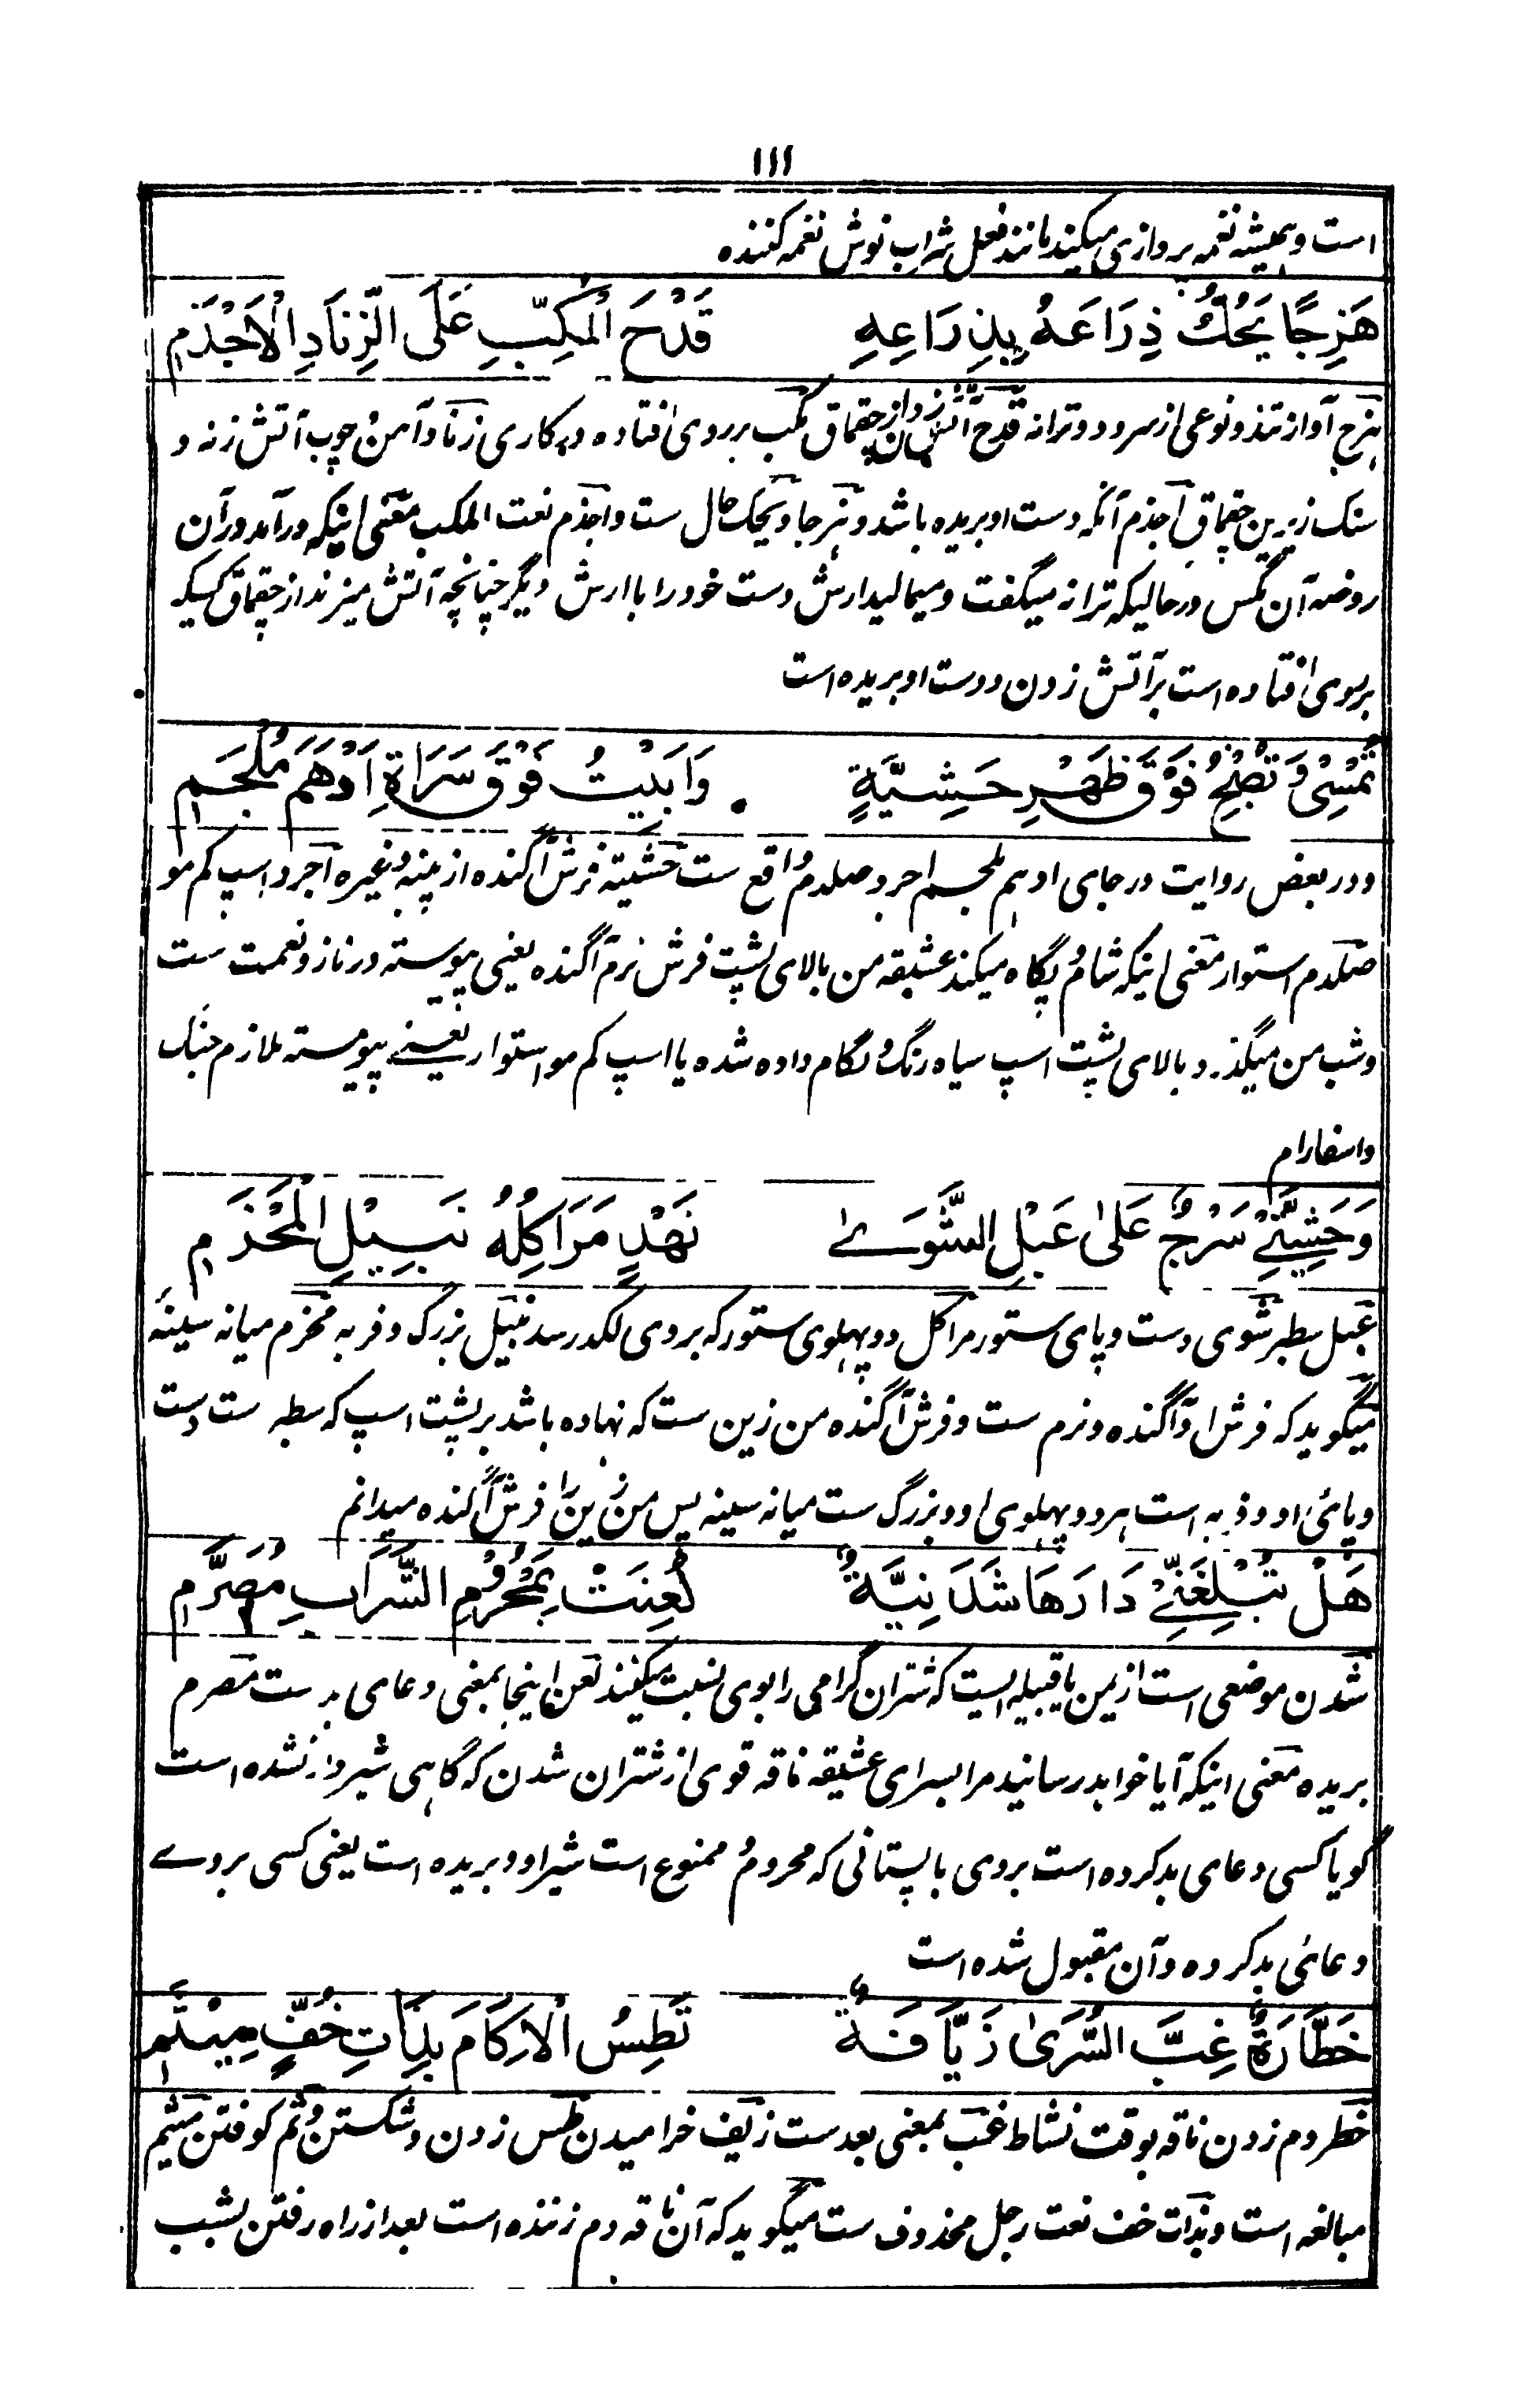 ١١١
است و همیشه نغمه پردازی میکند مانند فعل شراب نوش نغمه کننده
هَزِجًا يَحُكُّ ذِرَاعَهُ بِذِرَاعِهِ قَدْحَ الْمُكِبِّ عَلَى الزِّنَادِ الْأَجْذَمِ
هزج آواز تند و نوعی از سرود و ترانه قدح آتش زدن از چقماق مکب بر روی افتاده در کاری زناد آهن و چوب آتش زنه و
سنگ زیرین چقماق اجذم آنکه دست او بریده باشد و هزجا و یحک حال ست و اجذم نعت المکب معنی اینکه درآمد در آن
روضه آن مگس در حالیکه ترانه میگفت و میمالید ارش دست خود را با ارش دیگر چنانچه آتش میزند از چقماق کسیکه
بر روی افتاده است بر آتش زدن و دست او بریده است
تُمْسِىْ وَ تُصْبِحُ فَوْقَ ظَهْرِ حَشِيَّةٍ وَاَبِيْتُ فَوْقَ سَرَاةِ اَدْهَمَ مُلْجَمِ
و در بعض روایت در جای ادهم ملجم اجرد صلدم واقع ست حشیة فرش آگنده از پنبه و غیره اجرد اسپ کم مو
صلدم استوار معنی اینکه شام و پگاه میکند عشیقه من بالای پشت فرش نرم آگنده یعنی پیوسته در ناز و نعمت ست
و شب من میگذرد بالای پشت اسپ سیاه رنگ و لگام داده شده یا اسپ کم مو استوار یعنے پیوسته ملازم جنگ
و اسفارام
وَحَشِيَّتِيْ سَرْجٌ عَلىٰ عَبْلِ الشَّوَےٰ نَهْدٍ مَرَاكِلُهُ نَبِيْلِ الْمَحْزَمِ
عبل سطبر شوی دست و پای ستور مراکل دو پهلوی ستور که بر وی لگد رسد نبیل بزرگ و فربه محزم میانه سینه
میگوید که فرش او آگنده و نرم ست و فرش آگنده من زین ست که نهاده باشد بر پشت اسپ که سطبر ست دست
و پائی او و فربه است هر دو پهلوی او و بزرگ ست میانه سینه پس من زین را فرش آگنده میدانم
هَلْ تُبْلِغَنِّيْ دَارَهَا شَدَنِيَّةٌ لُعِنَتْ بِمَحْرُوْمِ الشَّرَابِ مُصَرَّمِ
شدن موضعی است از یمن یا قبیله ایست که شتران گرامی را بوی نسبت میکنند لعن اینجا بمعنی دعای بد ست مصرم
بریده معنی اینکه آیا خواهد رسانید مرا بسرای عشیقه ناقه قوی از شتران شدن که گاهی شیردار نشده است
گویا کسی دعای بد کرده است بر وی با پستانی که محروم و ممنوع است شیر او و بریده است یعنی کسی بروے
دعائی بد کرده و آن مقبول شده است
خَطَّارَةٌ غِبَّ السُّرَىٰ زَيَّافَةٌ تَطِسُ الْاِكَامَ بِذَاتِ خُفٍّ مِيْثَمِ
خطر دم زدن ناقه بوقت نشاط غب بمعنی بعد ست زیف خرامیدن طس زدن و شکستن وثم کوفتن میثم
مبالغه است و بذات خف نعت رجل محذوف ست میگوید که آن ناقه دم زننده است بعد از راه رفتن بشب